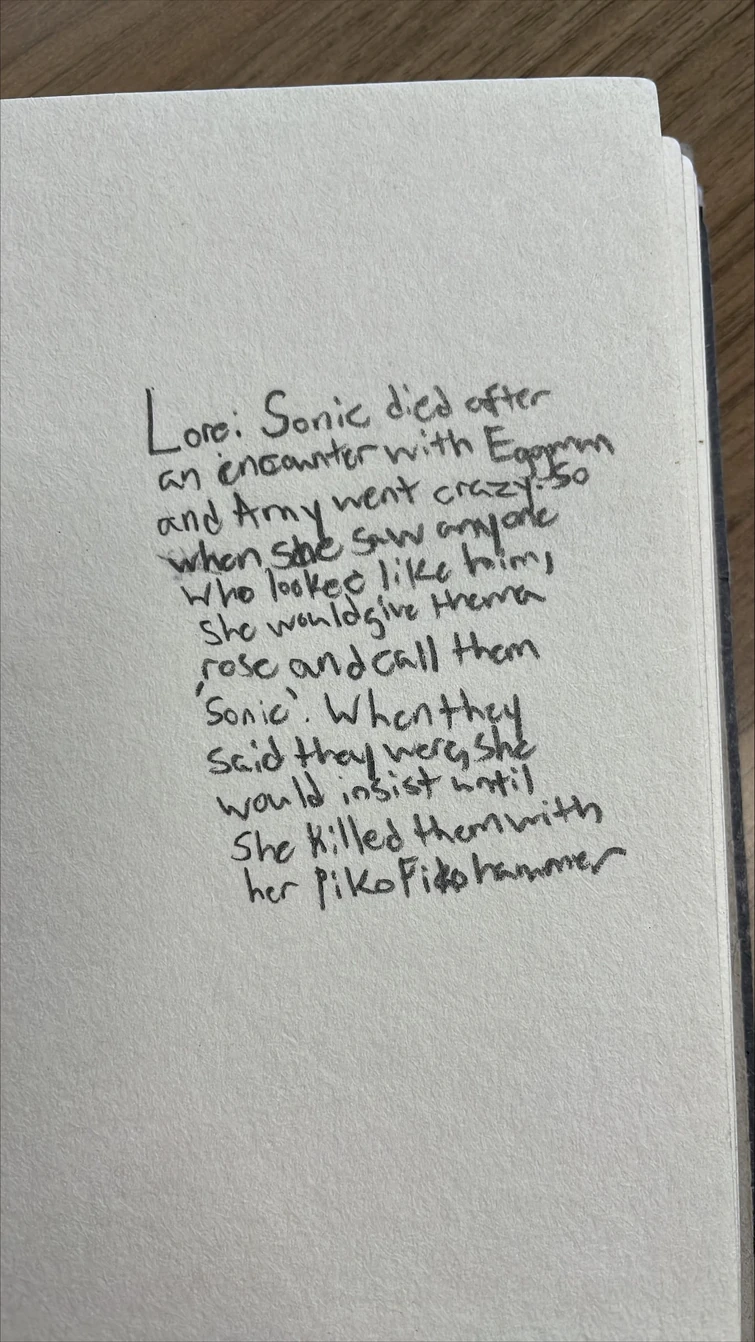 Lore: Sonic died after
an encounter with Eggman
and Amy went crazy. So
when she saw anyone
who looked like him,
she would give them a
rose and call them
'Sonic'. When they
said they were, she
would insist until
she killed them with
her Piko Piko hammer